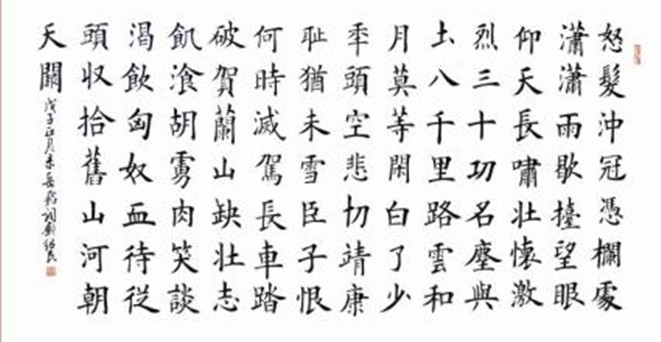 怒髮沖冠憑欄處
瀟瀟雨歇擡望眼
仰天長嘯壯懷激
烈三十功名塵與
土八千里路雲和
月莫等閑白了少
年頭空悲切靖康
耻猶未雪臣子恨
何時滅駕長車踏
破賀蘭山缺壯志
飢湌胡虜肉笑談
渴飲匈奴血待従
頭收拾舊山河朝
天闕
戊子正月录岳飛詞